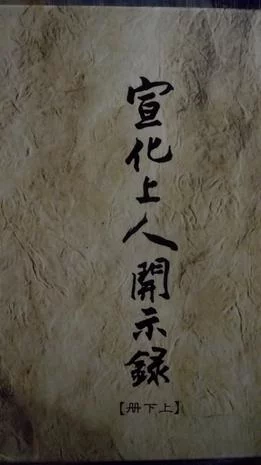 宣化上人開示錄
【上下册】